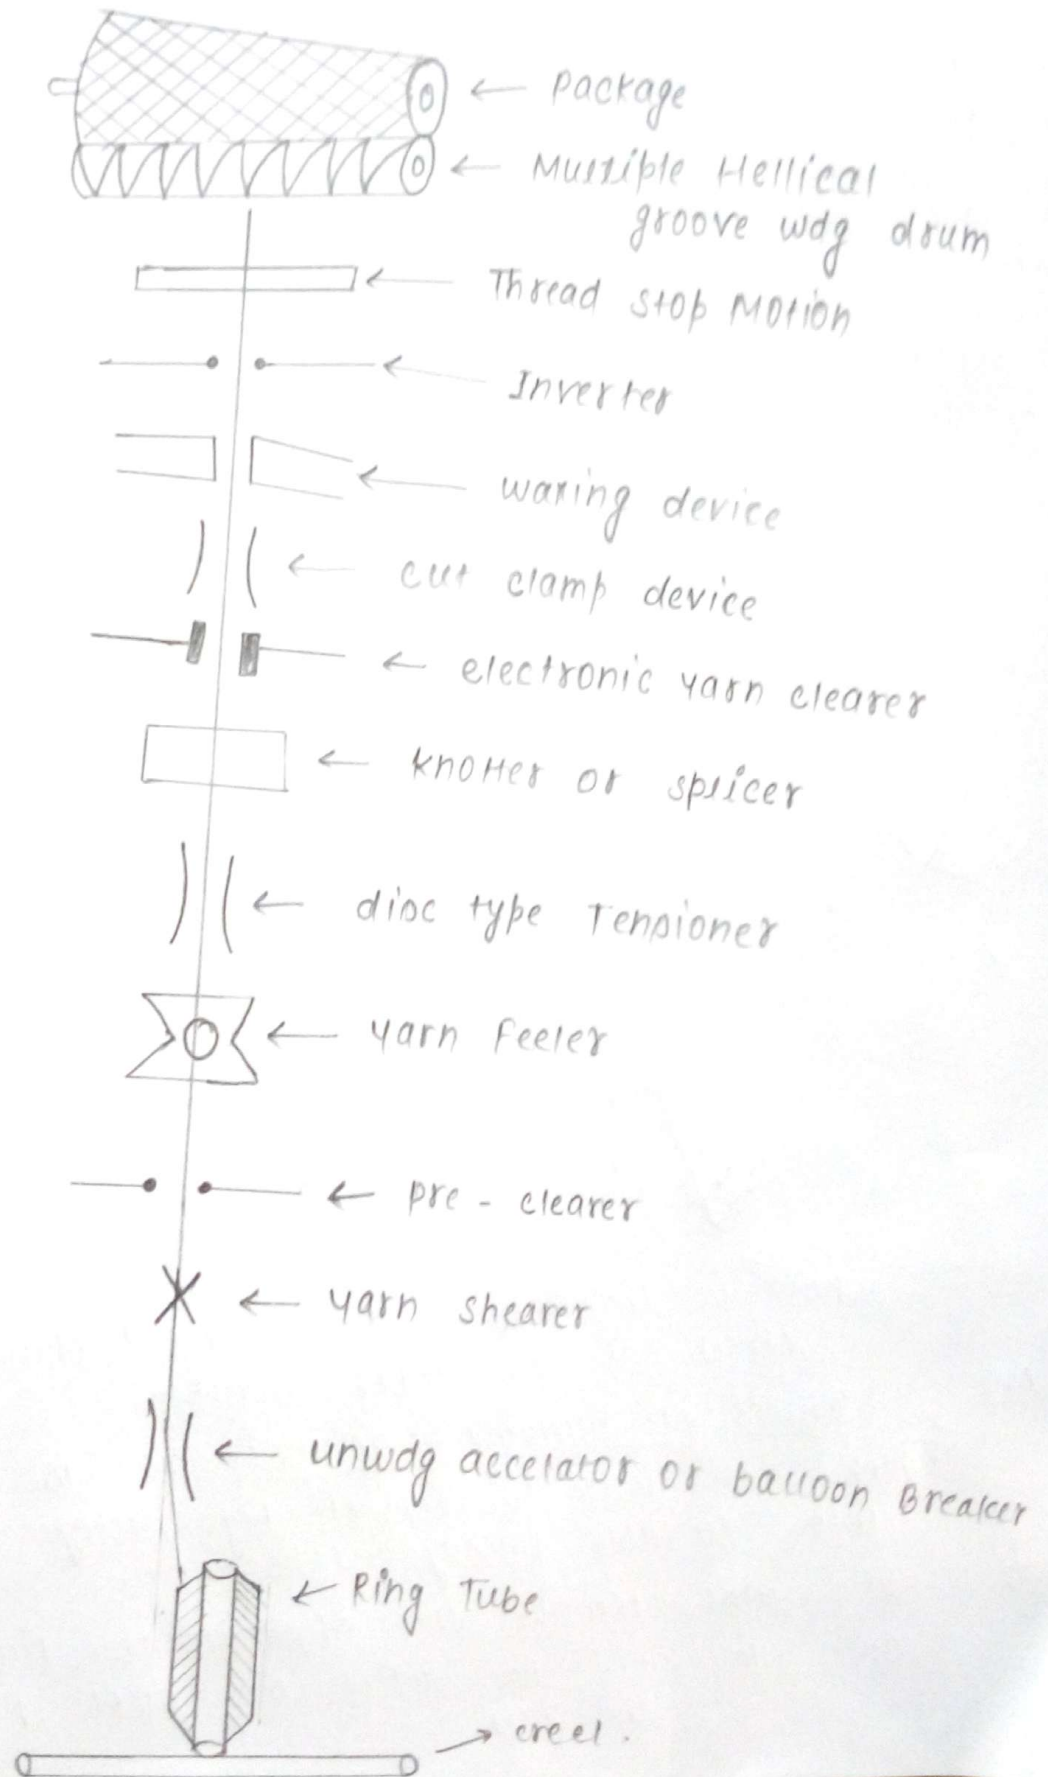 Package
Multiple Hellical
groove wdg drum
Thread stop Motion
Inverter
waxing device
cut clamp device
electronic yarn clearer
knotter or splicer
disc type Tensioner
yarn feeler
pre - clearer
yarn shearer
unwdg accelator or balloon Breaker
Ring Tube
creel.